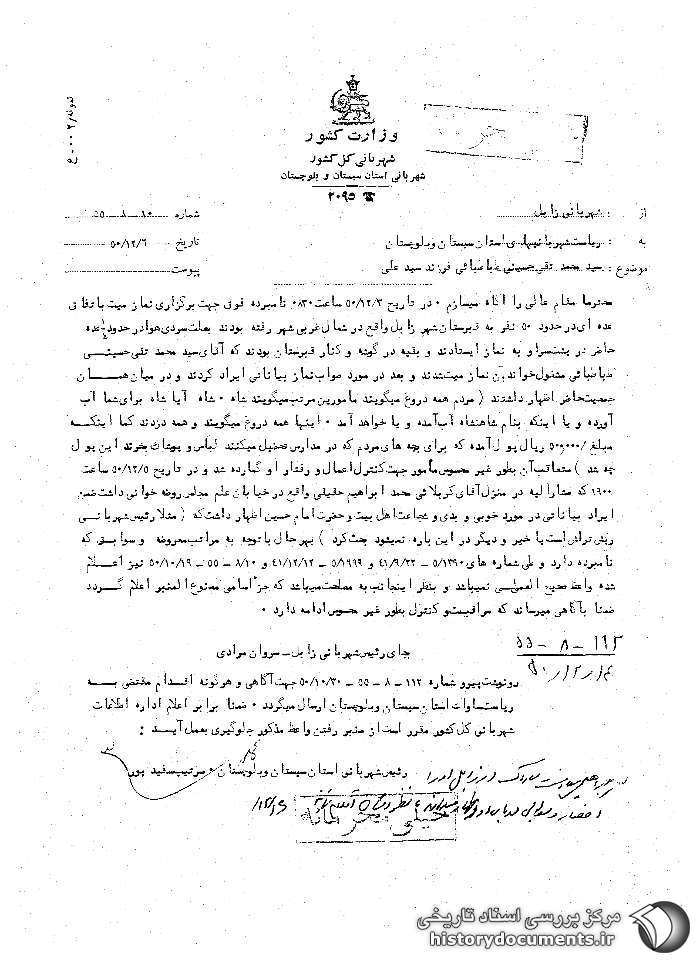 نمونه ۲۰۰ - ع
وزارت کشور
شهربانی کل کشور
شهربانی استان سیستان و بلوچستان
☎ ۲۰۹۵
از : شهربانی زابل
شماره ۱۰ - ۸ - ۵۵
به : ریاست شهربانیهای استان سیستان و بلوچستان
تاریخ ۵۰/۱۲/۶
موضوع : سید محمد تقی حسینی طباطبائی فرزند سید علی
پیوست
محترما مقام عالی را آگاه میسازم ۰ در تاریخ ۵۰/۱۲/۳ ساعت ۰۸۳۰ نامبرده فوق جهت برگزاری نماز میت باتفاق
عده ای در حدود ۵۰ نفر به قبرستان شهر زابل واقع در شمال غربی شهر رفته بودند بعلت سردی هوا در حدود عده
حاضر در پشت سر او به نماز ایستادند و بقیه در گوشه و کنار قبرستان بودند که آقای سید محمد تقی حسینی
طباطبائی مشغول خواندن نماز میت شدند و بعد در مورد ثواب نماز بیاناتی ایراد کردند و در میان همان
جمعیت حاضر اظهار داشتند ( مردم همه دروغ میگویند مامورین مرتب میگویند شاه ۰ شاه آیا شاه برای شما آب
آورده و یا اینکه بنام شاهنشاه آب آمده و یا خواهد آمد ۰ اینها همه دروغ میگویند و همه دزدند کما اینکه
مبلغ /۵۰۰۰۰۰ ریال پول آمده که برای بچه های مردم که در مدارس تحصیل میکنند لباس و پوشاک بخرند این پول
چه شد ) متعاقب آن بطور غیر محسوس مأمور جهت کنترل اعمال و رفتار او گمارده شد و در تاریخ ۵۰/۱۲/۵ ساعت
۱۹۰۰ که مشارالیه در منزل آقای کربلائی محمد ابراهیم حقیقی واقع در خیابان علم مجلس روضه خوانی داشت ضمن
ایراد بیاناتی در مورد خوبی و بدی و شجاعت اهل بیت و حضرت امام حسین اظهار داشت که ( مثلا رئیس شهربانی
ریش تراش است یا خیر و دیگر در این باره نمیشود بحث کرد ) بهر حال با توجه به مراتب معروضه و سوابق که
نامبرده دارد و طی شماره های ۵/۱۳۹۰ - ۴۱/۹/۲۲ و ۵/۱۹۹۹ - ۴۱/۱۲/۱۲ و ۸/۱۰ - ۵۵ - ۵۰/۱۰/۱۹ نیز اعلام
شده واعظ صحیح العملی نمیباشد و بنظر اینجانب به مصلحت میباشد که جزء اسامی ممنوع المنبر اعلام گردد
ضمنا بآگاهی میرساند که مراقبت و کنترل بطور غیر محسوس ادامه دارد ۰
جای رئیس شهربانی زابل - سروان مرادی
۱۱۲ - ۸ - ۵۵
رونوشت پیرو شماره ۱۱۲ - ۸ - ۵۵ - ۵۰/۱۰/۳۰ جهت آگاهی و هرگونه اقدام مقتضی به
ریاست ساواک استان سیستان و بلوچستان ارسال میگردد ۰ ضمنا برابر اعلام اداره اطلاعات
شهربانی کل کشور مقرر است از منبر رفتن واعظ مذکور جلوگیری بعمل آید :
رئیس شهربانی استان سیستان و بلوچستان - سرتیپ سفید پور
خیلی محرمانه
مرکز بررسی اسناد تاریخی
historydocuments.ir